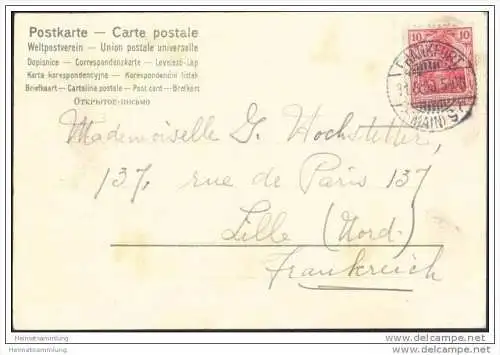 Postkarte — Carte postale
Weltpostverein — Union postale universelle
Dopisnice — Correspondenzkarte — Levelező-Lap
Karta korespondencyjna — Korespondenčni listek
Briefkaart — Cartolina postale — Post card — Brefkort
Открытое-письмо
10 10
FRANKFURT
(MAIN) 9
Mademoiselle G. Hochstetter,
137, rue de Paris 137
Lille (Nord)
Frankreich
Heimatsammlung
www.heimatsammlung.de
Heimatsammlung
www.heimatsammlung.de